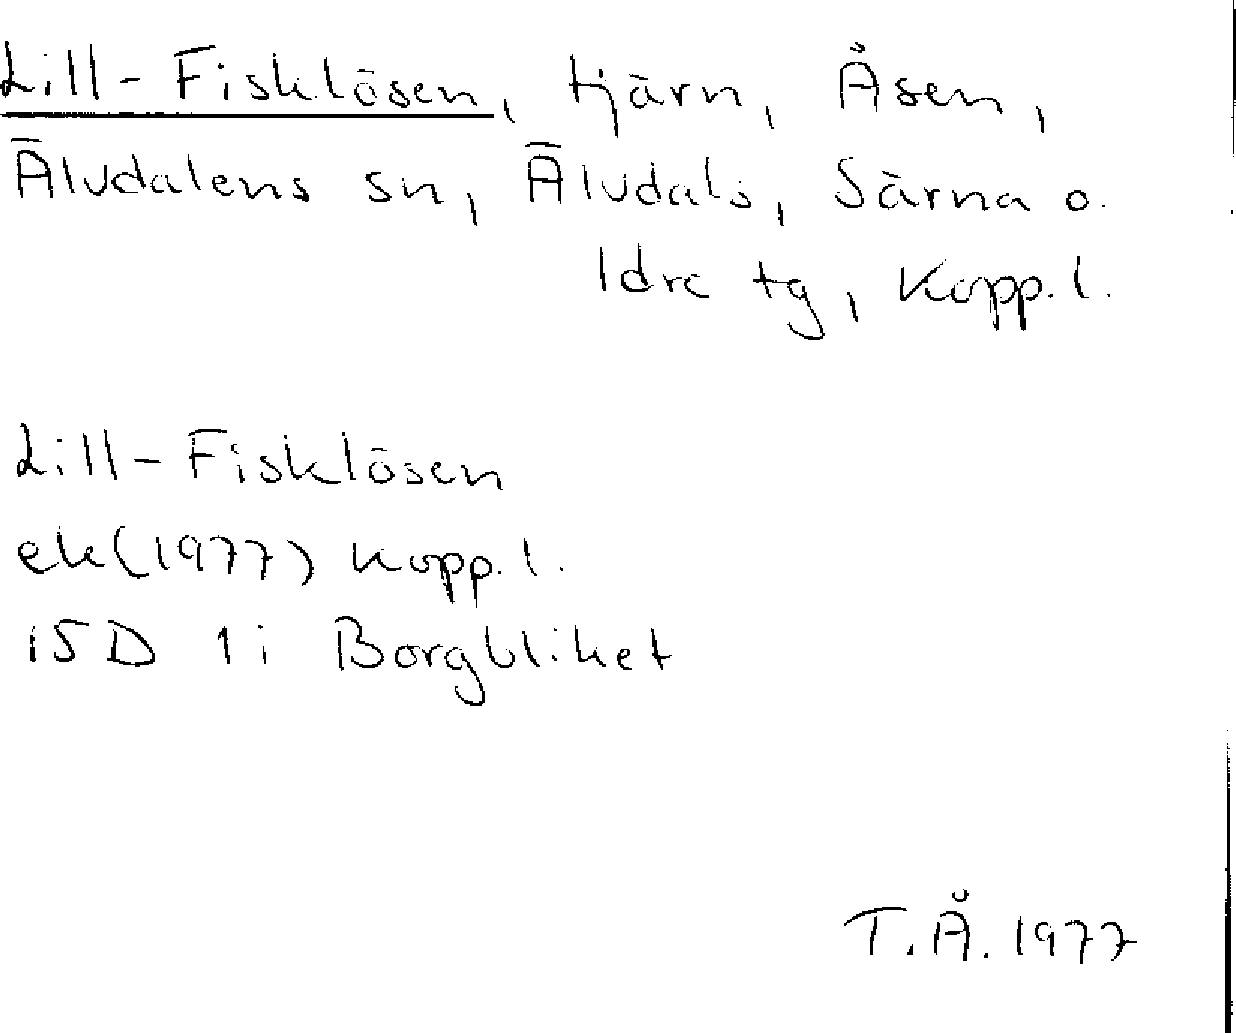 Lill-Fisklösen, tjärn, Åsen,
Älvdalens sn, Älvdals, Särna o.
Idre tg, Kopp. l.
Lill-Fisklösen
ek (1977) Kopp. l.
15D 1i Borgbliket
T.Å. 1977